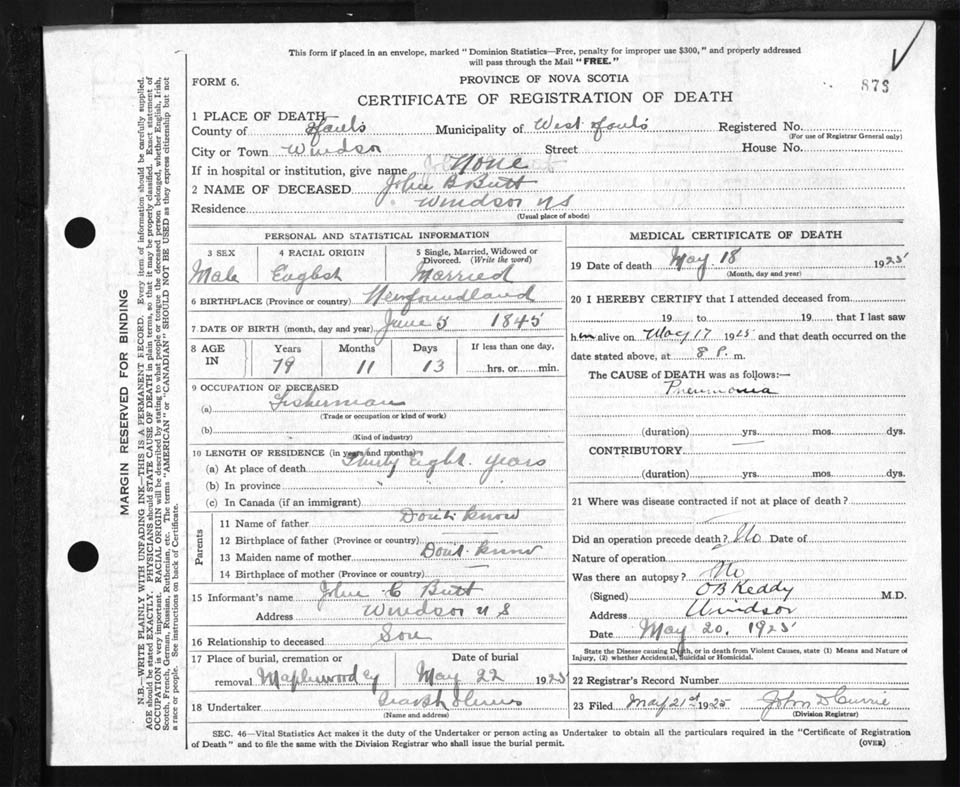 This form if placed in an envelope, marked "Dominion Statistics—Free, penalty for improper use $300," and properly addressed
will pass through the Mail "FREE."
FORM 6.
PROVINCE OF NOVA SCOTIA
873
CERTIFICATE OF REGISTRATION OF DEATH
1 PLACE OF DEATH
County of Hants Municipality of West Hants Registered No.
(For use of Registrar General only)
City or Town Windsor Street House No.
If in hospital or institution, give name None
2 NAME OF DECEASED John B Butt
Residence Windsor N S
(Usual place of abode)
PERSONAL AND STATISTICAL INFORMATION
3 SEX 4 RACIAL ORIGIN 5 Single, Married, Widowed or
Divorced. (Write the word)
Male English Married
6 BIRTHPLACE (Province or country) Newfoundland
7 DATE OF BIRTH (month, day and year) June 5 1845
8 AGE IN Years Months Days If less than one day,
79 11 13 hrs. or min.
9 OCCUPATION OF DECEASED
(a) Fisherman
(Trade or occupation or kind of work)
(b)
(Kind of industry)
10 LENGTH OF RESIDENCE (in years and months)
(a) At place of death Thirty Eight years
(b) In province " "
(c) In Canada (if an immigrant)
Parents
11 Name of father Don't know
12 Birthplace of father (Province or country)
13 Maiden name of mother Don't know
14 Birthplace of mother (Province or country) —
15 Informant's name John C Butt
Address Windsor N S
16 Relationship to deceased Son
17 Place of burial, cremation or Date of burial
removal Maplewood Cy May 22 1925
18 Undertaker
(Name and address)
MEDICAL CERTIFICATE OF DEATH
19 Date of death May 18 1925
(Month, day and year)
20 I HEREBY CERTIFY that I attended deceased from
19 to 19 that I last saw
him alive on May 17 1925 and that death occurred on the
date stated above, at 8 P. m.
The CAUSE of DEATH was as follows:—
Pneumonia
(duration) yrs. mos. dys.
CONTRIBUTORY
(duration) yrs. mos. dys.
21 Where was disease contracted if not at place of death?
Did an operation precede death? No Date of
Nature of operation
Was there an autopsy? No
(Signed) O B Keddy M.D.
Address Windsor
Date May 20, 1925
State the Disease causing Death, or in death from Violent Causes, state (1) Means and Nature of
Injury, (2) whether Accidental, Suicidal or Homicidal.
22 Registrar's Record Number
23 Filed May 21st 1925 John D Currie
(Division Registrar)
SEC. 46—Vital Statistics Act makes it the duty of the Undertaker or person acting as Undertaker to obtain all the particulars required in the "Certificate of Registration
of Death" and to file the same with the Division Registrar who shall issue the burial permit.
(OVER)
MARGIN RESERVED FOR BINDING
N.B.—WRITE PLAINLY WITH UNFADING INK—THIS IS A PERMANENT RECORD. Every item of information should be carefully supplied.
AGE should be stated EXACTLY. PHYSICIANS should STATE CAUSE OF DEATH in plain terms, so that it may be properly classified. Exact statement of
OCCUPATION is very important. RACIAL ORIGIN will be described by stating to what people or tongue the deceased person belonged, whether English, Irish,
Scotch, French, German, Russian, Ruthenian, etc. The terms "AMERICAN" or "CANADIAN" SHOULD NOT BE USED as they express citizenship but not
a race or people. See instructions on back of Certificate.